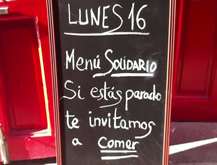 LUNES 16
Menú SOLIDARIO
Si estás parado
te invitamos
a comer